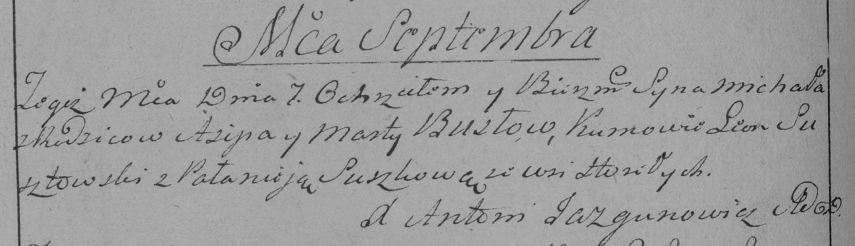 Mca Septembra
Tegoż Mca Dnia 7. Ochrzciłem y Bierzm Syna Michała
z Rodzicow Asipa y Marty Busłow, Kumowie Leon Su
szłowski z Pałanieją Suszkową ze wsi
X Antoni Jazgunowicz